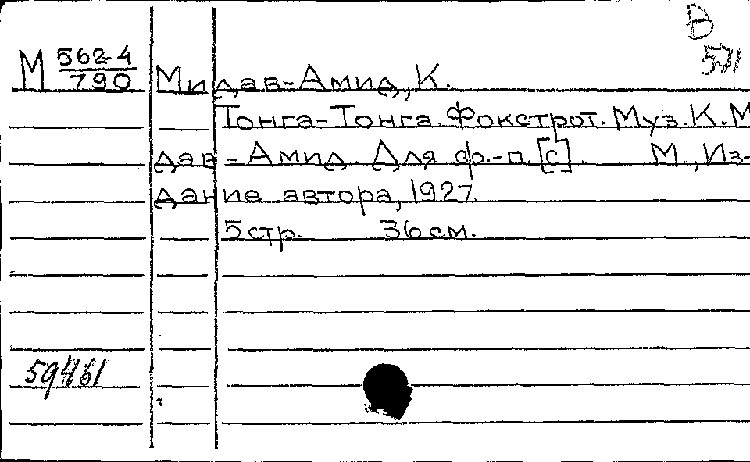 В
571
М 562-4
790
Мидав-Амид, К.
Тонга-Тонга. Фокстрот. Муз. К. М
дав-Амид. Для ф.-п. [с]. М., Из-
дание автора, 1927.
5 стр. 36 см.
59461